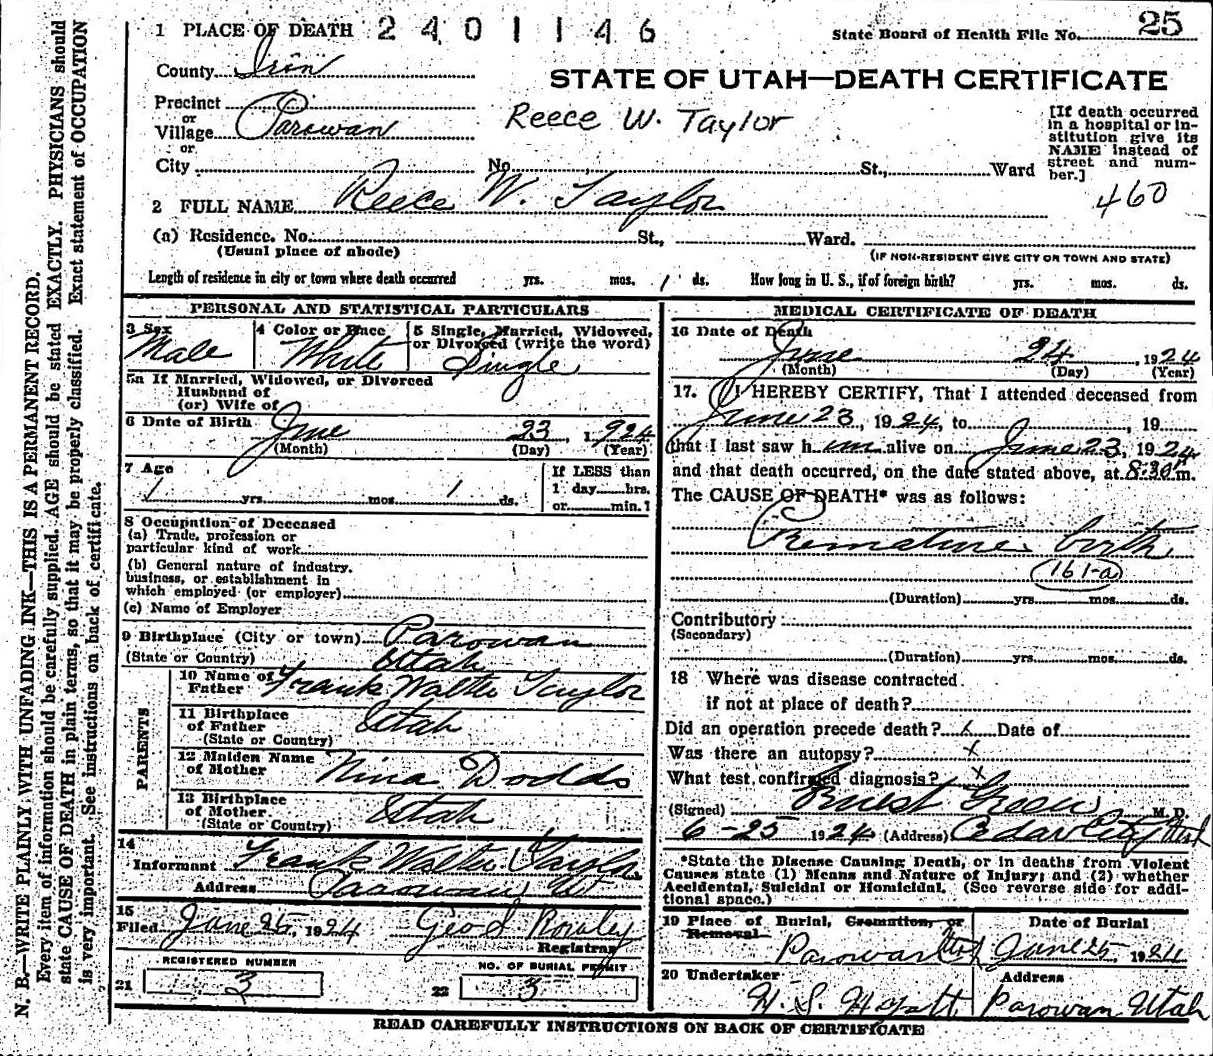 1 PLACE OF DEATH 2401146
State Board of Health File No. 25
County Iron
STATE OF UTAH—DEATH CERTIFICATE
Precinct
or
Village Parowan
or
City
Reece W. Taylor
[If death occurred
in a hospital or in-
stitution give its
NAME instead of
street and num-
ber.]
No. St., Ward
460
2 FULL NAME Reece W. Taylor
(a) Residence. No. St., Ward.
(Usual place of abode)
(IF NON-RESIDENT GIVE CITY OR TOWN AND STATE)
Length of residence in city or town where death occurred yrs. mos. 1 ds. How long in U. S., if of foreign birth? yrs. mos. ds.
PERSONAL AND STATISTICAL PARTICULARS
3 Sex
Male
4 Color or Race
White
5 Single, Married, Widowed,
or Divorced (write the word)
Single
5a If Married, Widowed, or Divorced
Husband of
(or) Wife of
6 Date of Birth June 23, 1924
(Month) (Day) (Year)
7 Age
yrs. mos. 1 ds.
If LESS than
1 day hrs.
or min.?
8 Occupation of Deceased
(a) Trade, profession or
particular kind of work
(b) General nature of industry.
business, or establishment in
which employed (or employer)
(c) Name of Employer
9 Birthplace (City or town) Parowan
(State or Country) Utah
PARENTS
10 Name of
Father Frank Walter Taylor
11 Birthplace
of Father Utah
(State or Country)
12 Maiden Name
of Mother Nina Dodds
13 Birthplace
of Mother Utah
(State or Country)
14
Informant Frank Walter Taylor
Address Parowan, Ut
15
Filed June 25, 1924 Geo S Rowley
Registrar
REGISTERED NUMBER
21 3
NO. OF BURIAL PERMIT
22 3
MEDICAL CERTIFICATE OF DEATH
16 Date of Death
June 24, 1924
(Month) (Day) (Year)
17. I HEREBY CERTIFY, That I attended deceased from
June 23, 1924, to , 19
that I last saw him alive on June 23, 1924
and that death occurred, on the date stated above, at 8:30 m.
The CAUSE OF DEATH* was as follows:
Premature birth
161-a
(Duration) yrs. mos. ds.
Contributory
(Secondary)
(Duration) yrs. mos. ds.
18 Where was disease contracted.
if not at place of death?
Did an operation precede death? x Date of
Was there an autopsy? x
What test confirmed diagnosis? x
(Signed) Ernest Green M.D.
6-25 1924 (Address) Cedar City Utah
*State the Disease Causing Death, or in deaths from Violent
Causes state (1) Means and Nature of Injury; and (2) whether
Accidental, Suicidal or Homicidal. (See reverse side for addi-
tional space.)
19 Place of Burial, Cremation, or
Removal
Parowan Utah
Date of Burial
June 25 1924
20 Undertaker
H. S. Hyatt
Address
Parowan Utah
READ CAREFULLY INSTRUCTIONS ON BACK OF CERTIFICATE
N. B.—WRITE PLAINLY WITH UNFADING INK—THIS IS A PERMANENT RECORD.
Every item of information should be carefully supplied. AGE should be stated EXACTLY. PHYSICIANS should
state CAUSE OF DEATH in plain terms, so that it may be properly classified. Exact statement of OCCUPATION
is very important. See instructions on back of certificate.